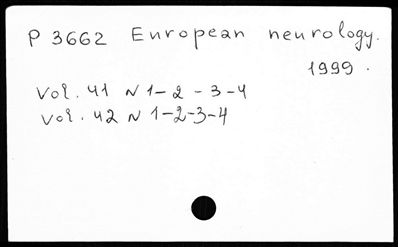 P 3662 European neurology.
1999.
Vol. 41 N 1-2-3-4
Vol. 42 N 1-2-3-4